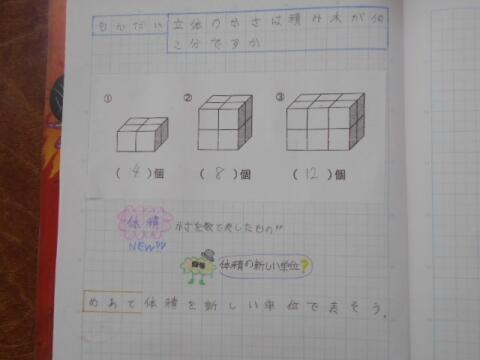 もんだい 立体のかさは積み木が何
こ分ですか
① ② ③
( 4 )個 ( 8 )個 ( 12 )個
体積 かさを数で表したもの!!
NEW!!
体積の新しい単位?
めあて 体積を新しい単位で表そう。